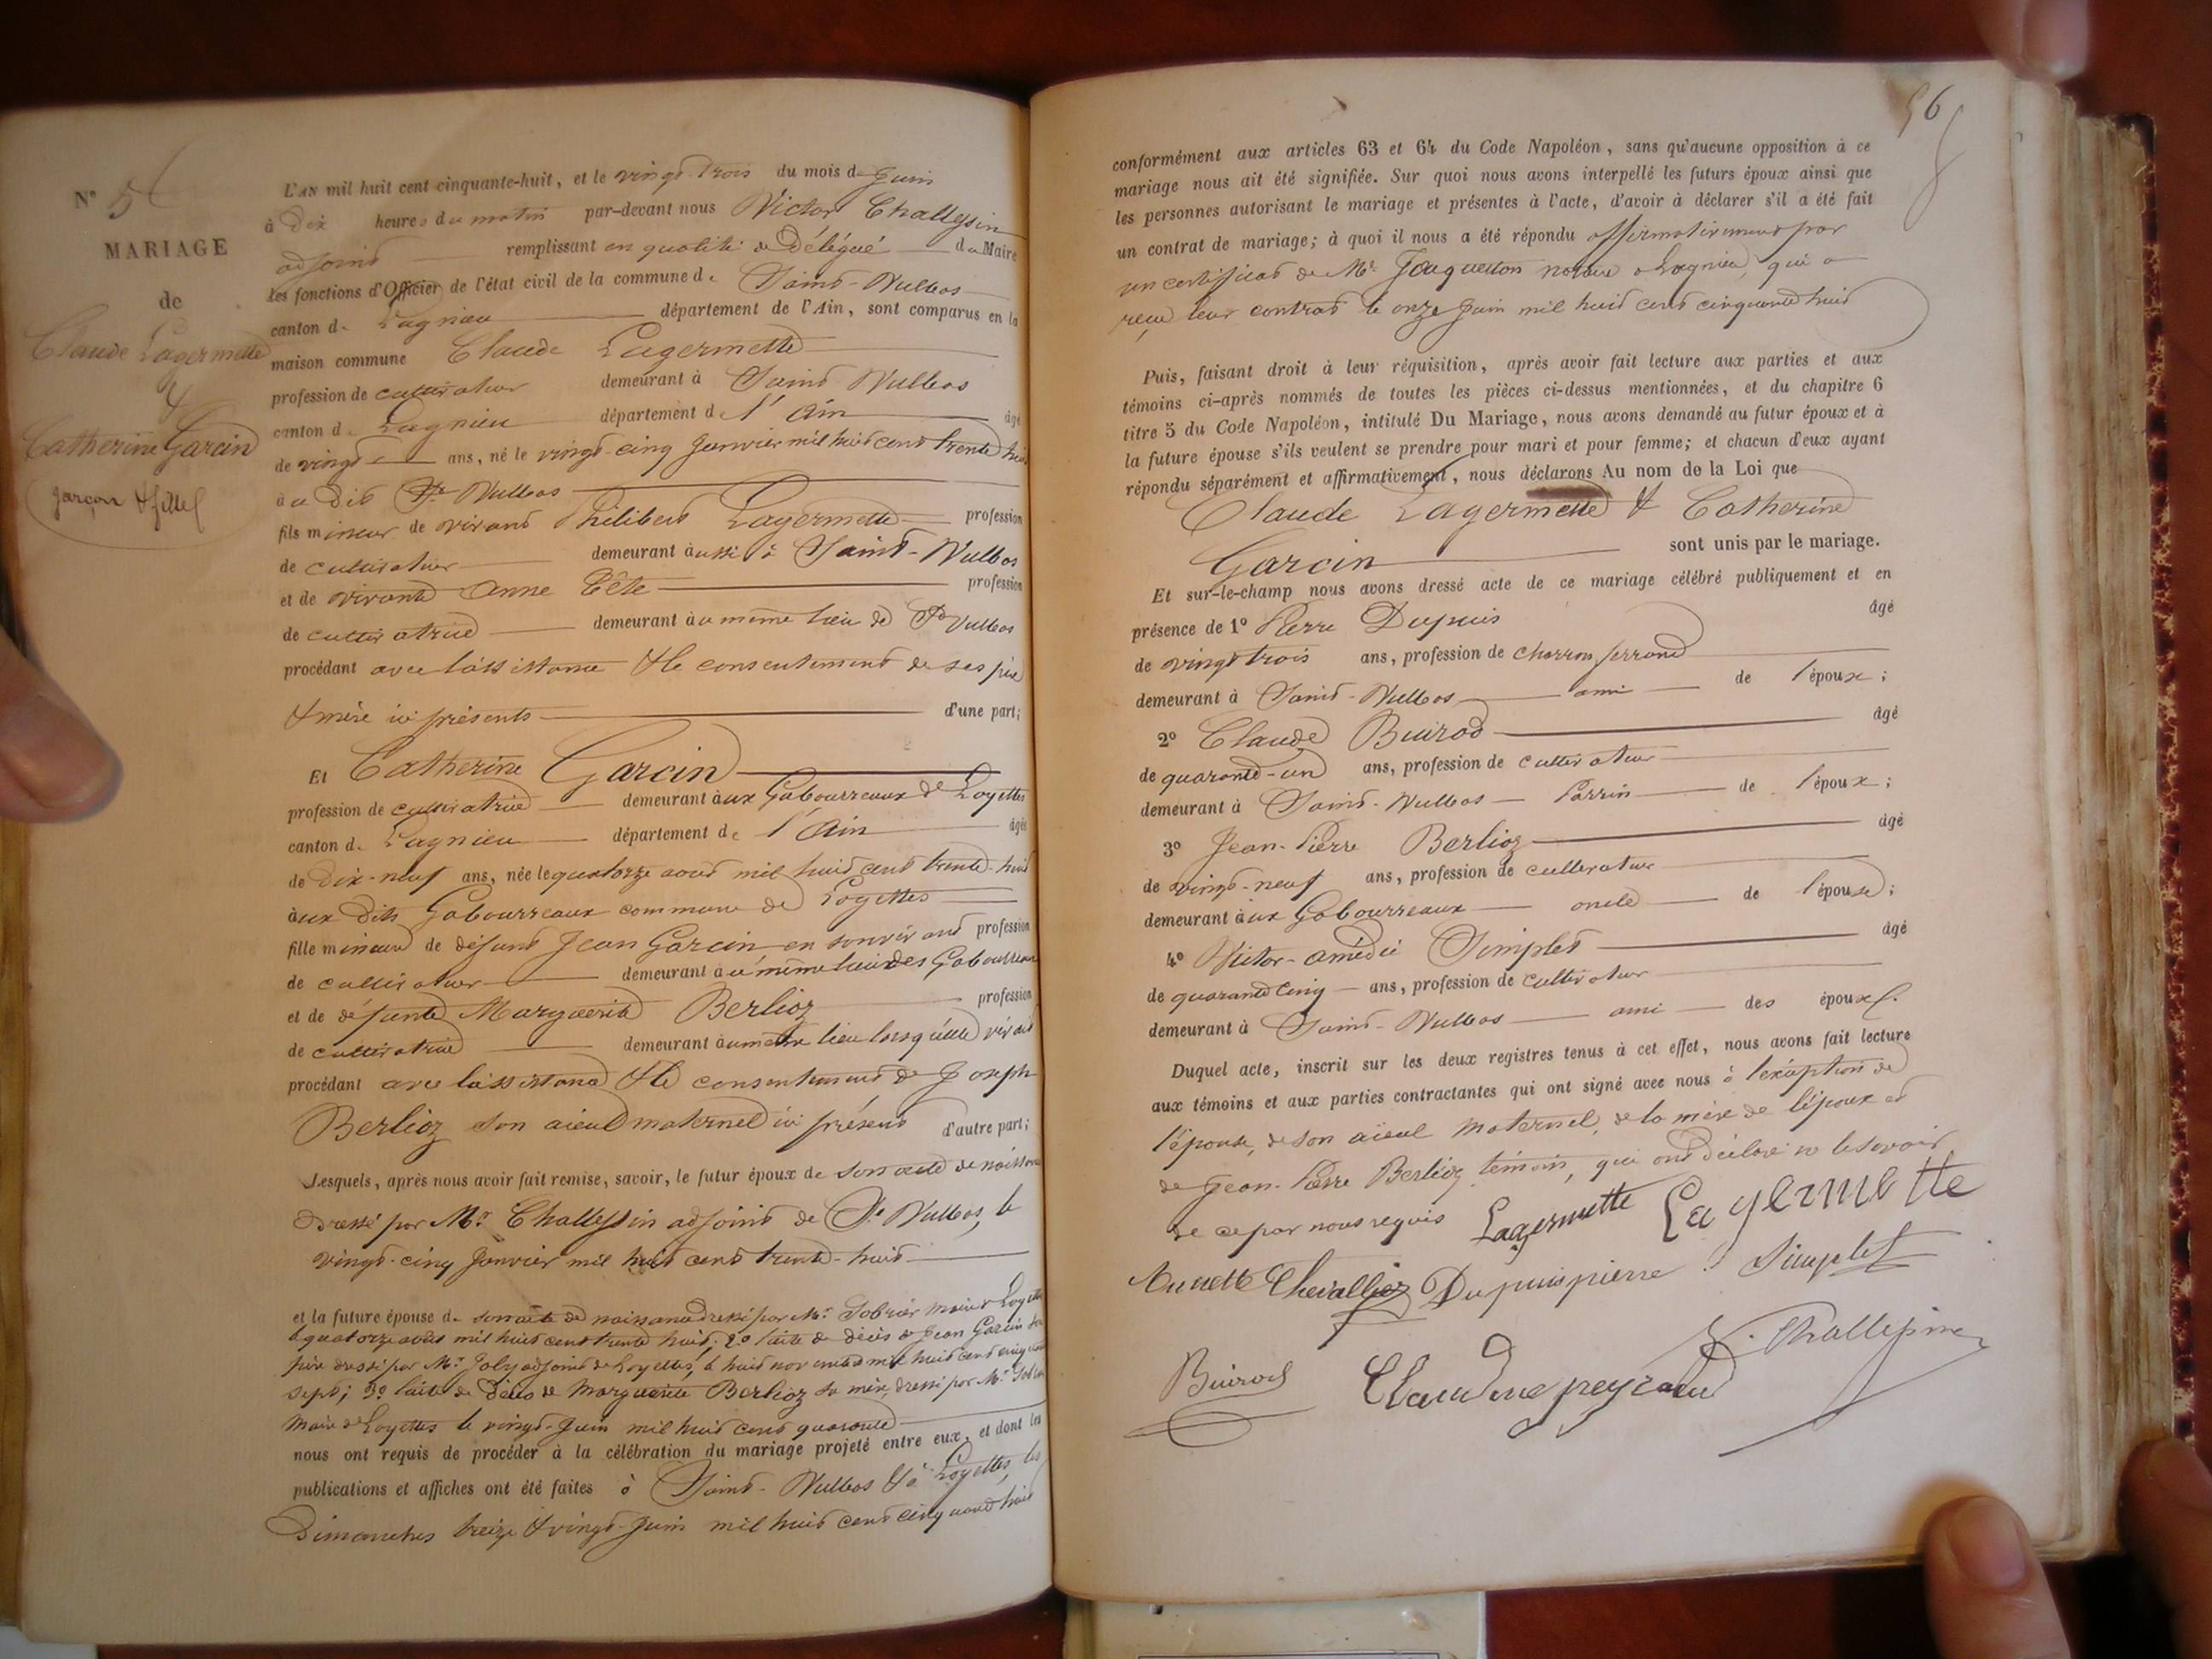 N° 5
MARIAGE
de
Claude Lagermette
&
Catherine Garcin
garçon & fille
L'AN mil huit cent cinquante-huit, et le vingt-trois du mois de Juin
à Dix heures du matin par-devant nous Victor Challessin
adjoint remplissant en qualité de Délégué du Maire
les fonctions d'Officier de l'état civil de la commune de Saint-Vulbas
canton de Lagnieu département de l'Ain, sont comparus en la
maison commune Claude Lagermette
profession de cultivateur demeurant à Saint Vulbas
canton de Lagnieu département de l'Ain âgé
de vingt ans, né le vingt-cinq Janvier mil huit cent trente huit
au dit St Vulbas
fils mineur de vivant Philibert Lagermette profession
de cultivateur demeurant aussi à Saint-Vulbas
et de vivante Anne Tête profession
de cultivatrice demeurant au même lieu de St Vulbas
procédant avec l'assistance & le consentement de ses père
& mère ici présents d'une part;
Et Catherine Garcin
profession de cultivatrice demeurant aux Gabourreaux de Loyettes
canton de Lagnieu département de l'Ain âgée
de Dix-neuf ans, née le quatorze août mil huit cent trente-huit
aux dits Gabourreaux commune de Loyettes
fille mineure de défunt Jean Garcin en son vivant profession
de cultivateur demeurant au même lieu des Gabourreaux
et de défunte Marguerite Berlioz profession
de cultivatrice demeurant au même lieu lorsqu'elle vivait
procédant avec l'assistance & le consentement de Joseph
Berlioz son aïeul maternel ici présent d'autre part;
Lesquels, après nous avoir fait remise, savoir, le futur époux de son acte de naissance
dressé par Mr Challessin adjoint de St Vulbas, le
vingt-cinq Janvier mil huit cent trente-huit
et la future épouse de son acte de naissance dressé par Mr Maire de Loyettes
le quatorze août mil huit cent trente huit; 2° l'acte de décès de Jean Garcin son
père dressé par Mr Joly adjoint de Loyettes, le huit novembre mil huit cent cinquante
sept; 3° l'acte de décès de Marguerite Berlioz sa mère, dressé par Mr
Maire de Loyettes le vingt-Juin mil huit cent quarante
nous ont requis de procéder à la célébration du mariage projeté entre eux, et dont les
publications et affiches ont été faites à Saint-Vulbas & à Loyettes, les
Dimanches treize & vingt-Juin mil huit cent cinquante huit
56
conformément aux articles 63 et 64 du Code Napoléon, sans qu'aucune opposition à ce
mariage nous ait été signifiée. Sur quoi nous avons interpellé les futurs époux ainsi que
les personnes autorisant le mariage et présentes à l'acte, d'avoir à déclarer s'il a été fait
un contrat de mariage; à quoi il nous a été répondu affirmativement par
un certificat de Me notaire à Lagnieu, qui a
reçu leur contrat le onze Juin mil huit cent cinquante huit
Puis, faisant droit à leur réquisition, après avoir fait lecture aux parties et aux
témoins ci-après nommés de toutes les pièces ci-dessus mentionnées, et du chapitre 6
titre 5 du Code Napoléon, intitulé Du Mariage, nous avons demandé au futur époux et à
la future épouse s'ils veulent se prendre pour mari et pour femme; et chacun d'eux ayant
répondu séparément et affirmativement, nous déclarons Au nom de la Loi que
Claude Lagermette & Catherine
Garcin sont unis par le mariage.
Et sur-le-champ nous avons dressé acte de ce mariage célébré publiquement et en
présence de 1° Pierre Dupuis âgé
de vingt trois ans, profession de charron ferrand
demeurant à Saint-Vulbas ami de l'époux;
2° Claude Buirod âgé
de quarante-un ans, profession de cultivateur
demeurant à Saint-Vulbas Parrin de l'époux;
3° Jean-Pierre Berlioz âgé
de vingt-neuf ans, profession de cultivateur
demeurant aux Gabourreaux oncle de l'épouse;
4° Victor-amédée Simplet âgé
de quarante cinq ans, profession de cultivateur
demeurant à Saint-Vulbas ami des époux.
Duquel acte, inscrit sur les deux registres tenus à cet effet, nous avons fait lecture
aux témoins et aux parties contractantes qui ont signé avec nous à l'exception de
l'épouse, de son aïeul maternel, de la mère de l'époux et
de Jean-Pierre Berlioz témoin, qui ont déclaré ne le savoir
de ce par nous requis Lagermette Lagermette
Annette Chevallier Dupuis pierre Simplet
Buirod Claudine peyraud V. Challessin